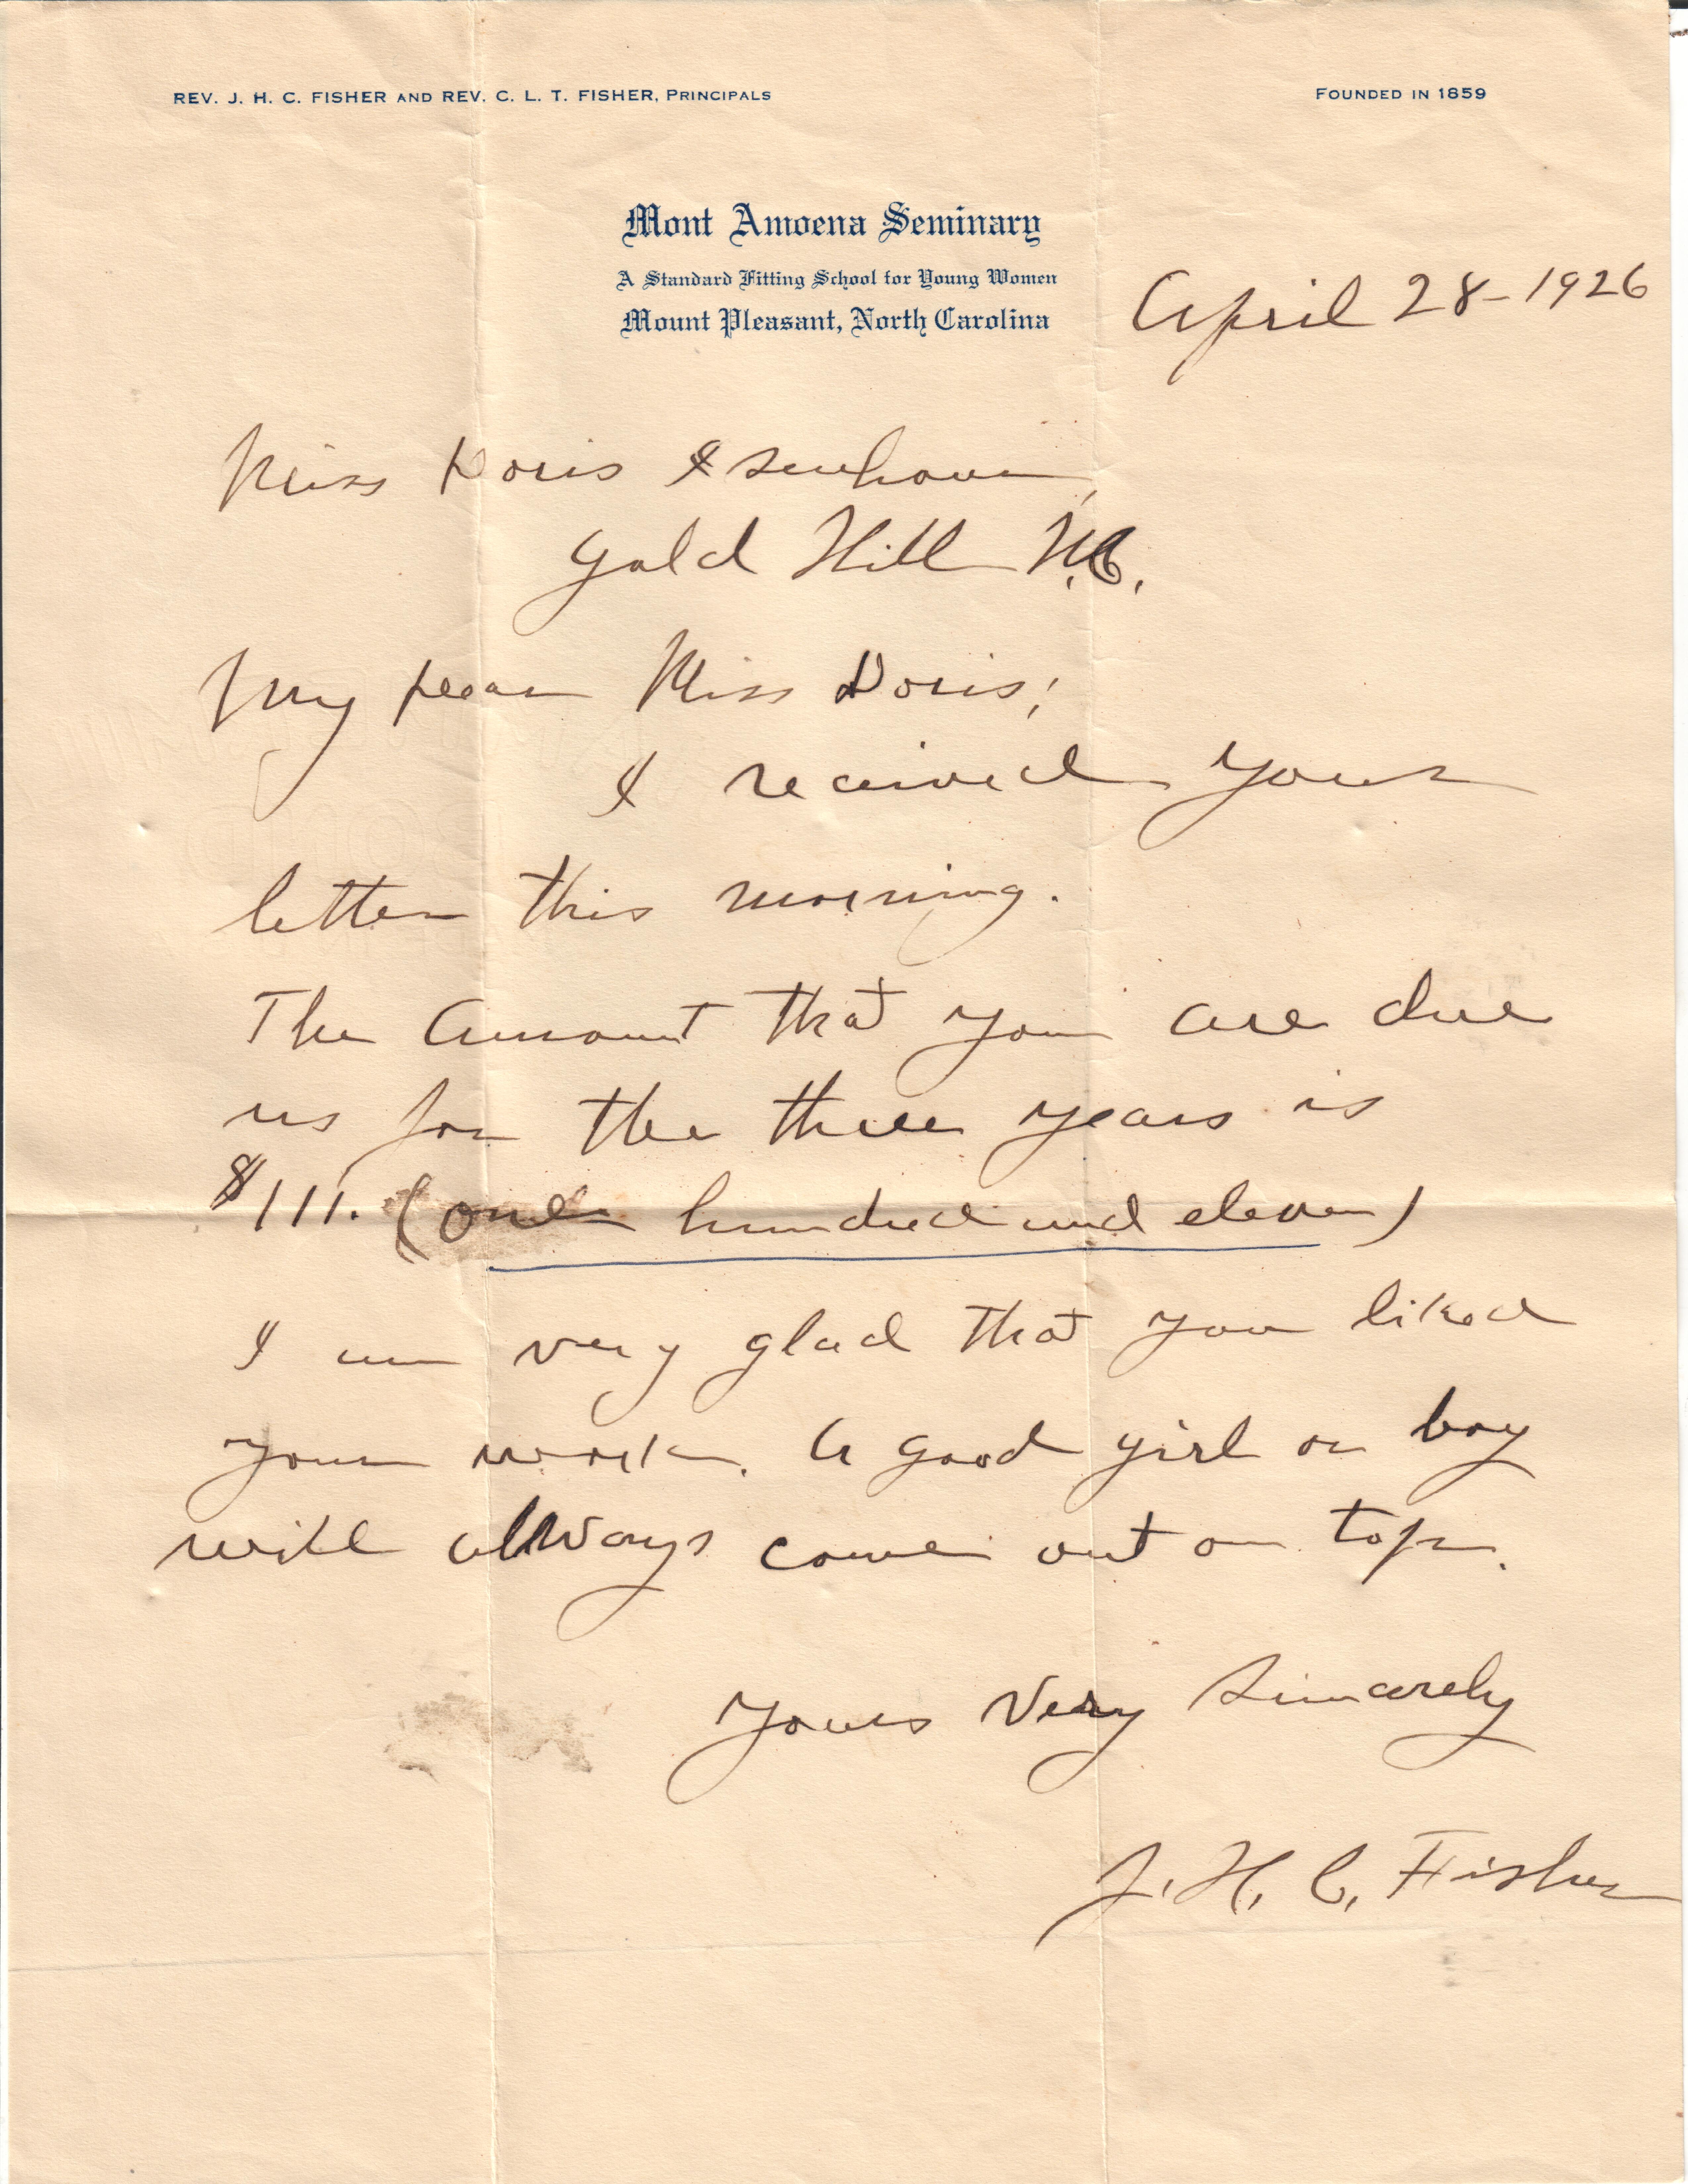 REV. J. H. C. FISHER AND REV. C. L. T. FISHER, PRINCIPALS
FOUNDED IN 1859
Mont Amoena Seminary
A Standard Fitting School for Young Women
Mount Pleasant, North Carolina
April 28-1926
Miss Doris
Gold Hill N.C.
My Dear Miss Doris;
I received your
letter this morning.
The Amount that you are due
us for the three years is
$111. (one hundred and eleven)
I am very glad that you liked
your work. A good girl or boy
will always come out on top.
Yours Very Sincerely
J. H. C. Fisher